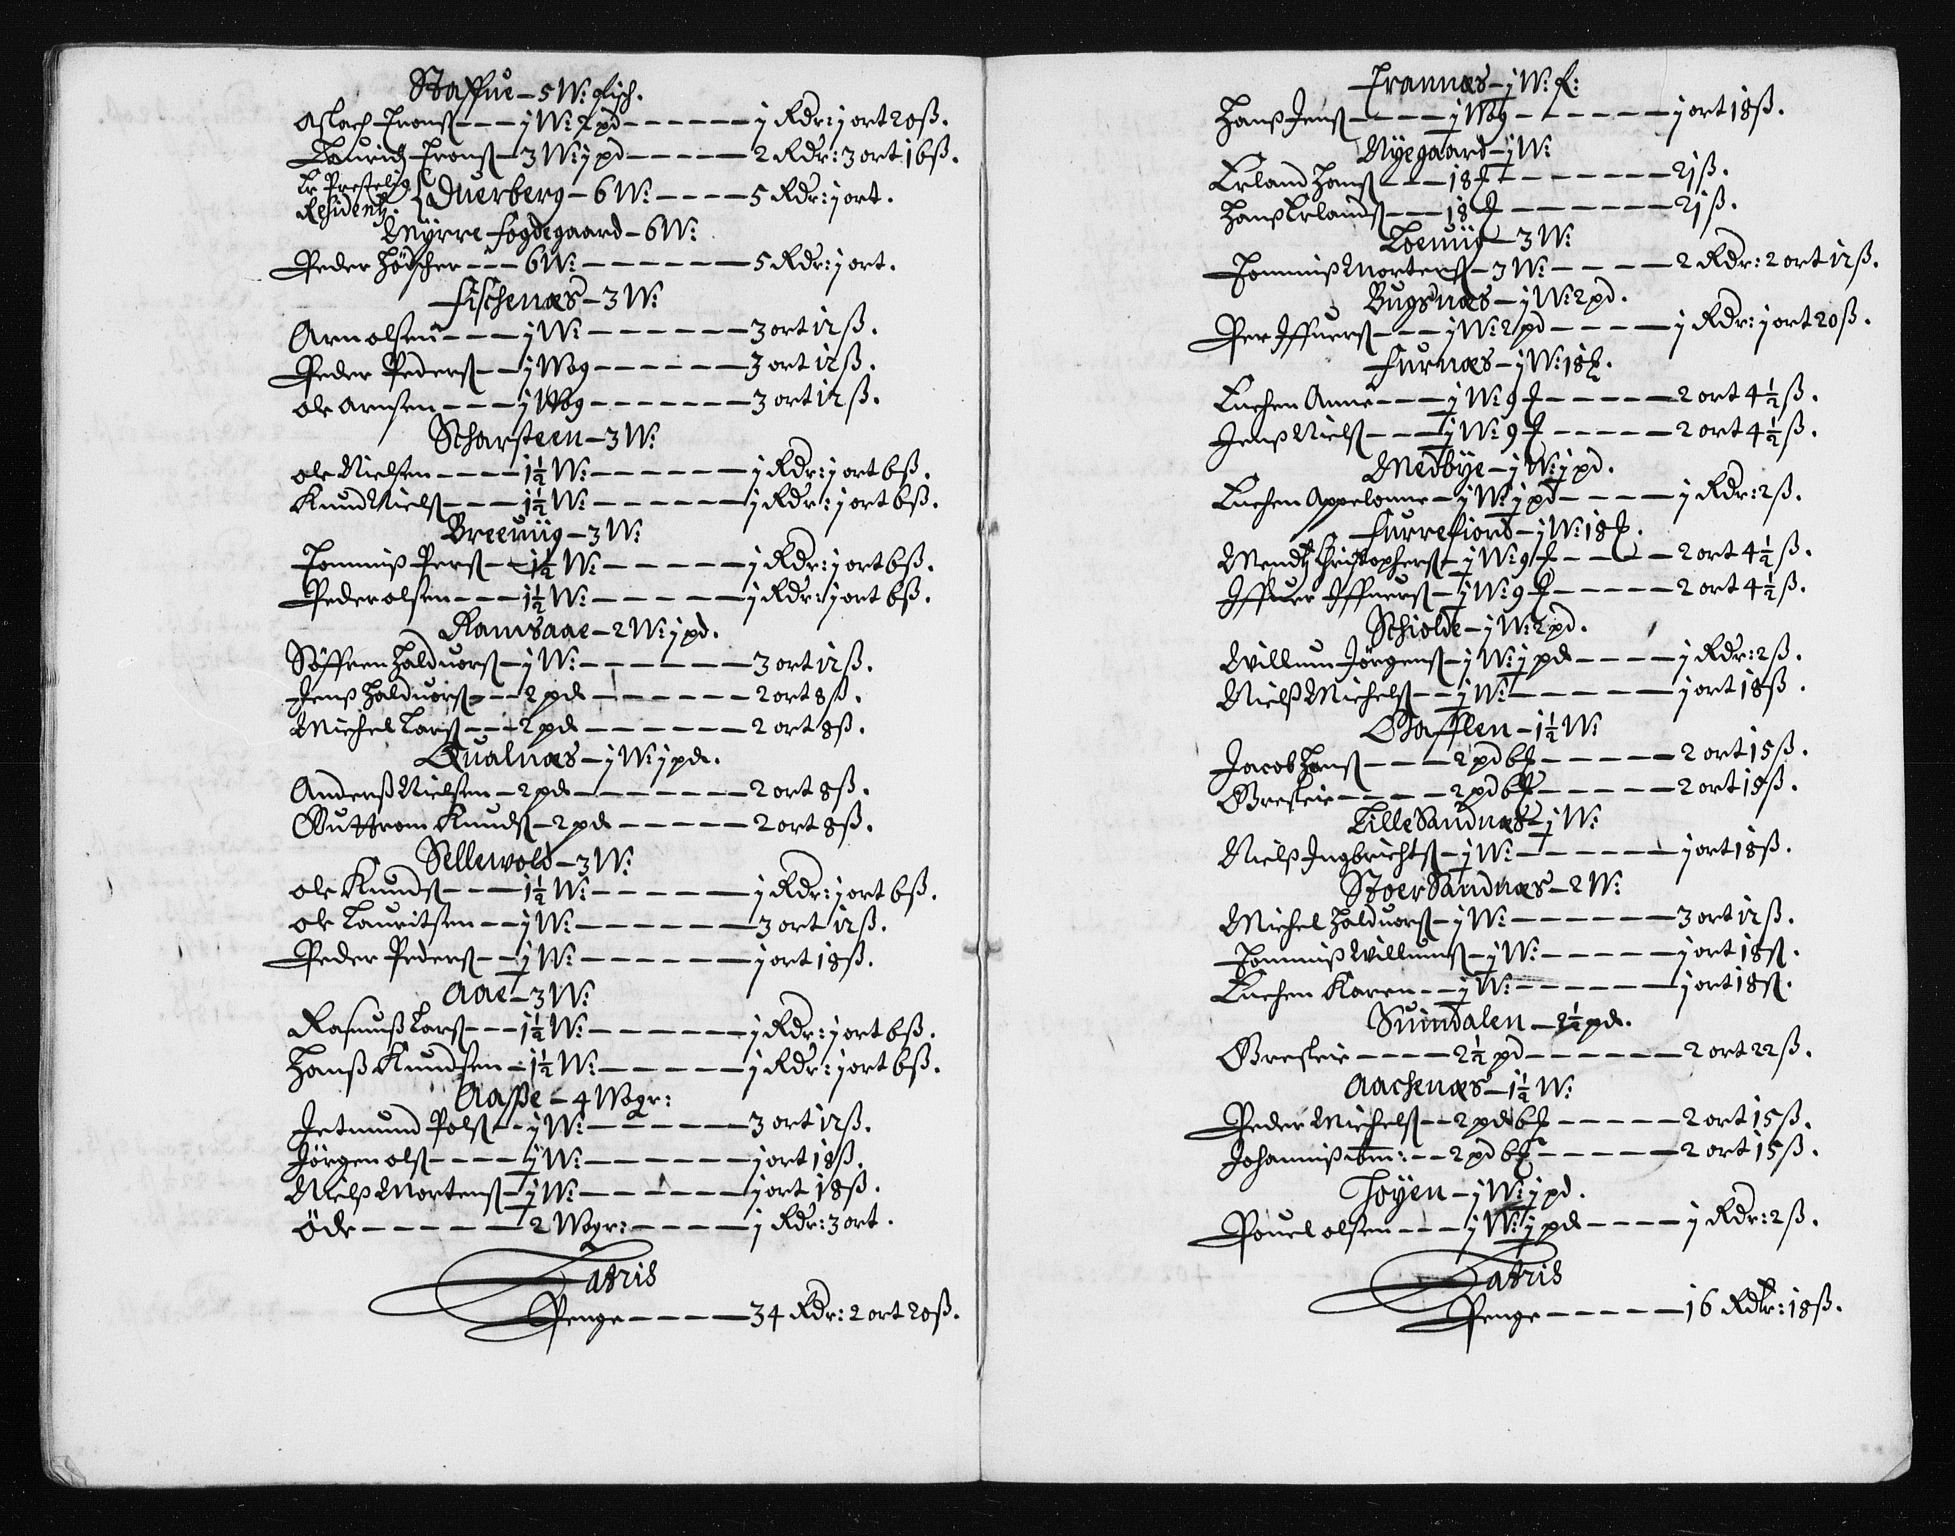 Staffue – 5 W: fisch.
Aslach Tronß – j W: 2 pd – j Rdr: j ort 20 ß.
Lauridz Tronß – 3 W: j pd – 2 Rdr: 3 ort 16 ß.
Er Prestelig Residentz. { Duerberg – 6 W: – 5 Rdr: j ort.
Myrre fogdegaard – 6 W:
Peder Höscher – 6 W: – 5 Rdr: j ort.
Fischenæs – 3 W:
Arn olsen – j W: – 3 ort 12 ß.
Peder Pederß – j Wog – 3 ort 12 ß.
ole Arnsen – j Wog – 3 ort 12 ß.
Scharsteen – 3 W:
ole Nielsen – 1½ W: – j Rdr: j ort 6 ß.
Knud Nielß – 1½ W: – j Rdr: j ort 6 ß.
Breeuiig – 3 W:
Tommiß Perß – 1½ W: – j Rdr: j ort 6 ß.
Peder olsen – 1½ W: – j Rdr: j ort 6 ß.
Ramsaae – 2 W: j pd.
Söffren Halduorß – j W: – 3 ort 12 ß.
Jenß Halduorß – 2 pd – 2 ort 8 ß.
Michel Larß – 2 pd – 2 ort 8 ß.
Qualnæs – j W: j pd.
Anderß Nielsen – 2 pd – 2 ort 8 ß.
Guttrom Knudß – 2 pd – 2 ort 8 ß.
Sellewold – 3 W:
ole Knudß – 1½ W: – j Rdr: j ort 6 ß.
ole Lauritsen – j W: – 3 ort 12 ß.
Peder Pederß – ½ W: – j ort 18 ß.
Aae – 3 W:
Rasmuß Larß – 1½ W: – j Rdr: j ort 6 ß.
Hanß Knudsen – 1½ W: – j Rdr: j ort 6 ß.
Aaße – 4 Wogr:
Jetmund Polß – j W: – 3 ort 12 ß.
Jörgen olß – ½ W: – j ort 18 ß.
Nielß Mortenß – ½ W: – j ort 18 ß.
öde – 2 Wogr: – j Rdr: 3 ort.
Latris
Penge – 34 Rdr: 2 ort 20 ß.
Trannæs – ½ W: f:
Hanß Jenß – ½ Wog – j ort 18 ß.
Nyegaard – ½ W:
Erland Hanß – 18 ℔ – 21 ß.
Hanß Erlandß – 18 ℔ – 21 ß.
Loeuiig – 3 W:
Tommiß Mortenß – 3 W: – 2 Rdr: 2 ort 12 ß.
Bugsnæs – j W: 2 pd.
Per Iffuerß – j W: 2 pd – j Rdr: j ort 20 ß.
Furnæs – j W: 18 ℔.
Enchen Anne – ½ W: 9 ℔ – 2 ort 4½ ß.
Jenß Nielß – ½ W: 9 ℔ – 2 ort 4½ ß.
Medbye – j W: j pd.
Enchen Appelonne – j W: j pd – j Rdr: 2 ß.
Furrefiord – j W: 18 ℔.
Mendtz Christopherß – ½ W: 9 ℔ – 2 ort 4½ ß.
Iffuer Iffuerß – ½ W: 9 ℔ – 2 ort 4½ ß.
Schiolde – j W: 2 pd.
Willum Jörgenß – j W: j pd – j Rdr: 2 ß.
Nielß Michelß – ½ W: – j ort 18 ß.
Gafflen – 1½ W:
Jacob Hanß – 2 pd 6 ℔ – 2 ort 15 ß.
Greseie – 2 pd 6 ℔ – 2 ort 18 ß.
Lille Sandnæs – ½ W:
Nielß Ingbrichtß – ½ W: – j ort 18 ß.
Stoer Sandnæs – 2 W:
Michel Halduorß – j W: – 3 ort 12 ß.
Tommiß Willumß – ½ W: – j ort 18 ß.
Enchen Karen – ½ W: – j ort 18 ß.
Suindalen – 2½ pd.
Greseie – 2½ pd – 2 ort 22 ß.
Aachenæs – 1½ W:
Peder Michelß – 2 pd 6 ℔ – 2 ort 15 ß.
Johanniß ibm: – 2 pd 6 ℔ – 2 ort 15 ß.
Töyen – j W: j pd.
Pouel olsen – j W: j pd – j Rdr: 2 ß.
Latris
Penge – 16 Rdr: 18 ß.